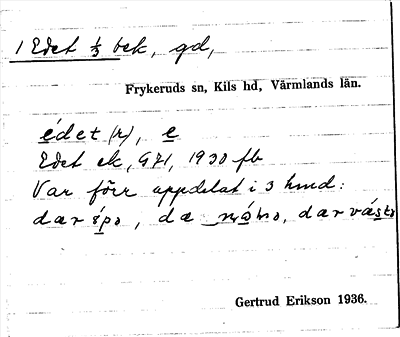 1 Edet ⅓ bek, gd,
Frykeruds sn, Kils hd, Värmlands län.
édet (r), e
Edet ek, G71, 1930 fb
Var förr uppdelat i 3 hmd:
dær , dæ , dær
Gertrud Erikson 1936.